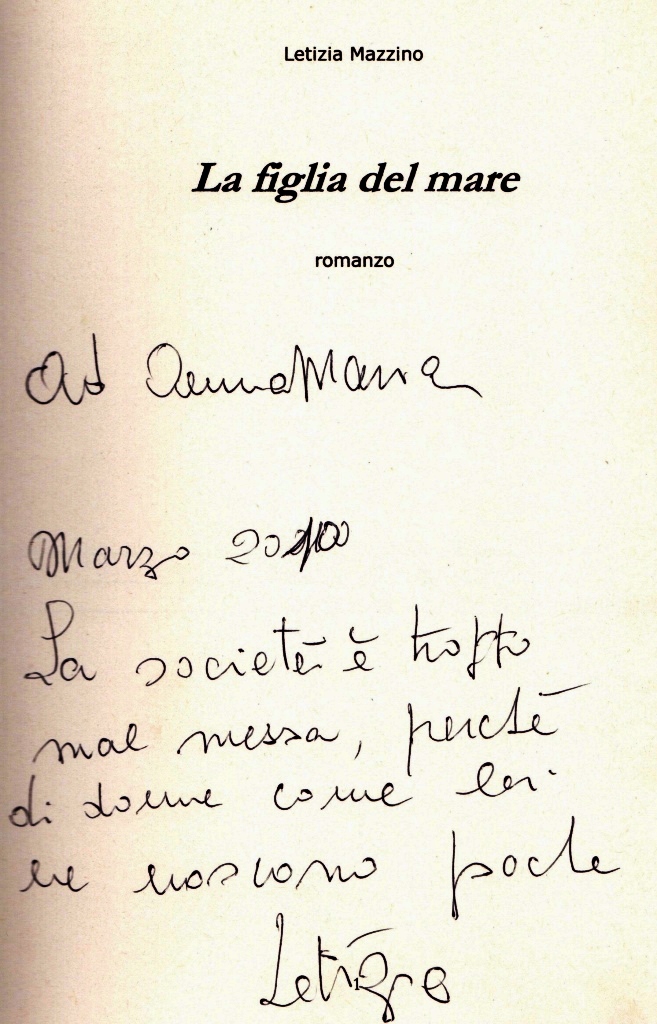 Letizia Mazzino
La figlia del mare
romanzo
Ad AnnaMaria
Marzo 2010
La società è troppo
mal messa, perchè
di donne come lei
ne nascono poche
Letizia